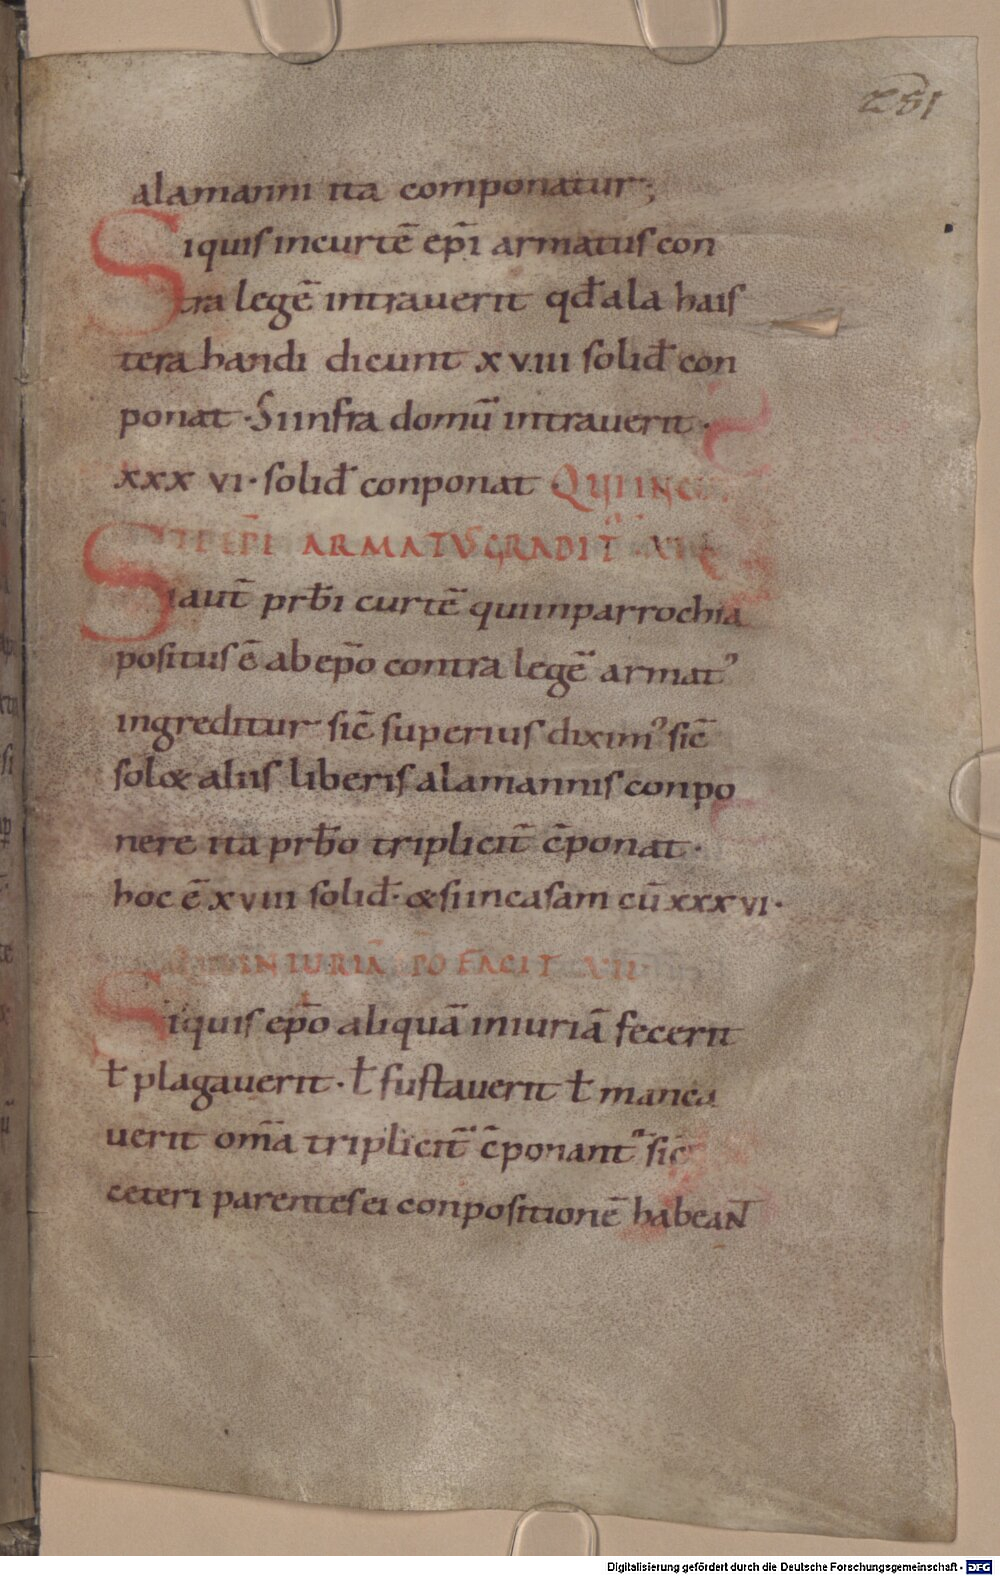 281
alamanni ita componatur;
Siquis in curtē ep̄i armatus con
tra legē intrauerit qđ ala hais
tera handi dicunt xviii solid̄ con
ponat · Si infra domū intrauerit ·
xxxvi · solid̄ conponat QUI IN
EP̄I ARMATUS GRADIT̄
Siaut̄ prƀi curtē qui in parrochia
positus ē ab ep̄o contra legē armatꝰ
ingreditur sic̄ superius diximꝰ sic̄
sol& aliis liberis alamannis conpo
nere ita prƀo triplicit̄ c̄ponat ·
hoc ē xviii solid̄ · & si in casam cū xxxvi ·
INIURIĀ FACIT VII
Siquis ep̄o aliquā iniuriā fecerit
ł plagauerit · ł fustauerit ł manca
uerit om̄a triplicit̄ c̄ponant̄ sic̄
ceteri parentes ei conpositionē habeant
Digitalisierung gefördert durch die Deutsche Forschungsgemeinschaft - DFG